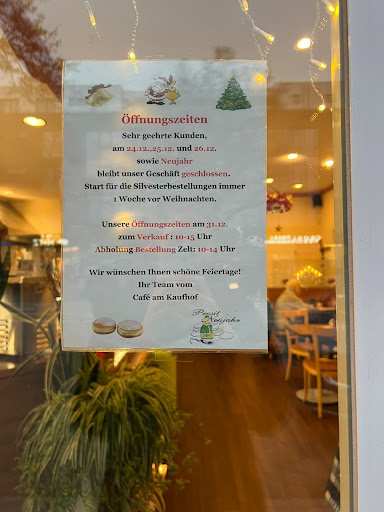 Öffnungszeiten
Sehr geehrte Kunden,
am 24.12.,25.12. und 26.12.
sowie Neujahr
bleibt unser Geschäft geschlossen.
Start für die Silvesterbestellungen immer
1 Woche vor Weihnachten.
Unsere Öffnungszeiten am 31.12.
zum Verkauf : 10-15 Uhr
Abholung Bestellung Zelt: 10-14 Uhr
Wir wünschen Ihnen schöne Feiertage!
Ihr Team vom
Café am Kaufhof
Prosit
Neujahr